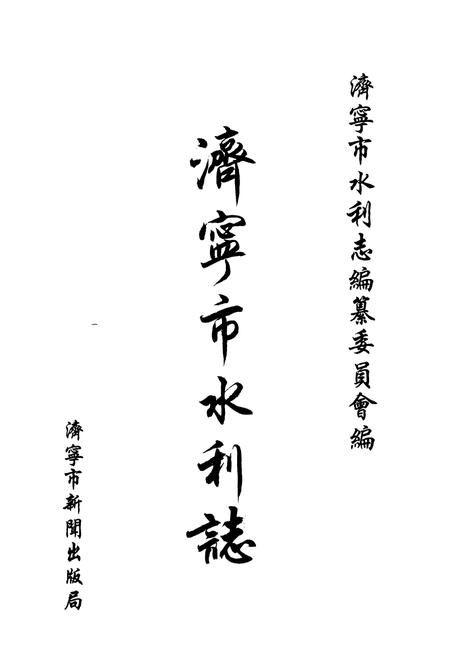 濟寧市水利志編纂委員會編
濟寧市水利誌
濟寧市新聞出版局